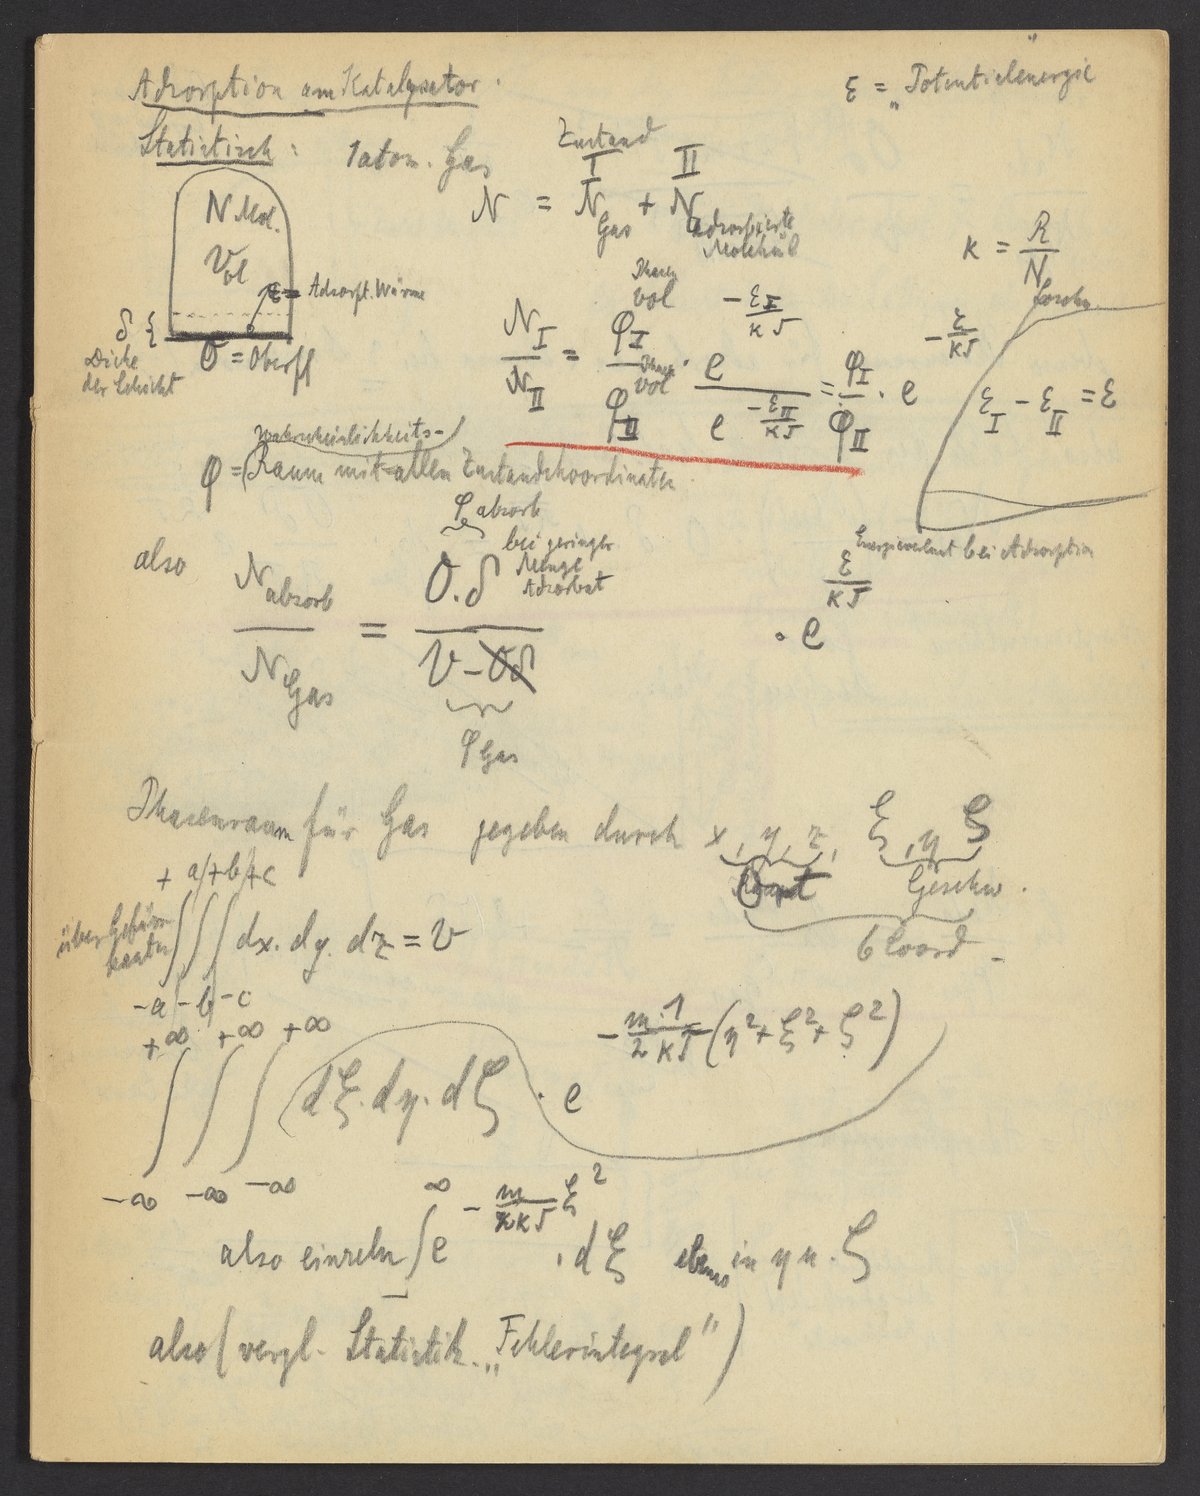 Adsorption am Katalysator.
ε = „Potentialenergie"
Statistisch: 1atom. Gas
Zustand
I II
N = N Gas + N adsorbierte Moleküle
N Mol.
Vol
ε = Adsorpt. Wärme
δ {
Dicke
der Schicht
O = Oberfl
κ = R/N
Phasen
vol
N_I/N_II = φ_I/φ_II · e^(-ε_I/κT)/e^(-ε_II/κT) = φ_I/φ_II · e^(-ε/κT)
Phasen
vol
ε_I - ε_II = ε
Wahrscheinlichkeits-
φ = (Raum mit allen Zustandskoordinaten
φ absorb
bei geringer
Menge
Adsorbat
Energieverlust bei Adsorption
also N absorb/N Gas = O.δ/(V - Oδ) · e^(ε/κT)
φ Gas
Phasenraum für Gas gegeben durch x, y, z, ξ, η ζ
Ort Geschw.
6 Coord.
+a +b +c
über
∫∫∫ dx. dy. dz = V
-a -b -c
+∞ +∞ +∞
∫∫∫ (dξ. dη. dζ · e^(-m/2 · 1/κT (η² + ξ² + ζ²))
-∞ -∞ -∞
also einzeln ∫ e^(-m/2κT ξ²) . dξ ebenso in η u. ζ
also (vergl. Statistik. „Fehlerintegral")